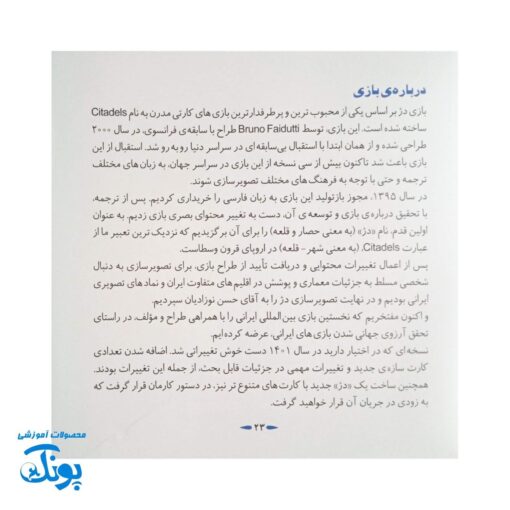 درباره‌ی بازی
بازی دژ بر اساس یکی از محبوب ترین و پرطرفدارترین بازی های کارتی مدرن به نام Citadels
ساخته شده است. این بازی، توسط Bruno Faidutti طراح با سابقه‌ی فرانسوی، در سال ۲۰۰۰
طراحی شده و از همان ابتدا با استقبال بی‌سابقه‌ای در سراسر دنیا رو به رو شد. استقبال از این
بازی باعث شد تاکنون بیش از سی نسخه از این بازی در سراسر جهان، به زبان های مختلف
ترجمه و حتی با توجه به فرهنگ های مختلف تصویرسازی شوند.
در سال ۱۳۹۵، مجوز بازتولید این بازی به زبان فارسی را خریداری کردیم. پس از ترجمه،
با تحقیق درباره‌ی بازی و توسعه‌ی آن، دست به تغییر محتوای بصری بازی زدیم. به عنوان
اولین قدم، نام «دژ» (به معنی حصار و قلعه) را برای آن برگزیدیم که نزدیک ترین تعبیر ما از
عبارت Citadels، (به معنی شهر - قلعه) در اروپای قرون وسطاست.
پس از اعمال تغییرات محتوایی و دریافت تأیید از طراح بازی، برای تصویرسازی به دنبال
شخصی مسلط به جزئیات معماری و پوشش در اقلیم های متفاوت ایران و نماد های تصویری
ایرانی بودیم و در نهایت تصویرسازی دژ را به آقای حسن نوزادیان سپردیم.
و اکنون مفتخریم که نخستین بازی بین‌المللی ایرانی را با همراهی طراح و مؤلف، در راستای
تحقق آرزوی جهانی شدن بازی های ایرانی، عرضه کرده‌ایم.
نسخه‌ای که در اختیار دارید در سال ۱۴۰۱ دست خوش تغییراتی شد. اضافه شدن تعدادی
کارت سازه‌ی جدید و تغییرات مهمی در جزئیات قابل بحث، از جمله این تغییرات بودند.
همچنین ساخت یک «دژ» جدید با کارت های متنوع تر نیز، در دستور کارمان قرار گرفت که
به زودی در جریان آن قرار خواهید گرفت.
۲۳
محصولات آموزشی
پونک